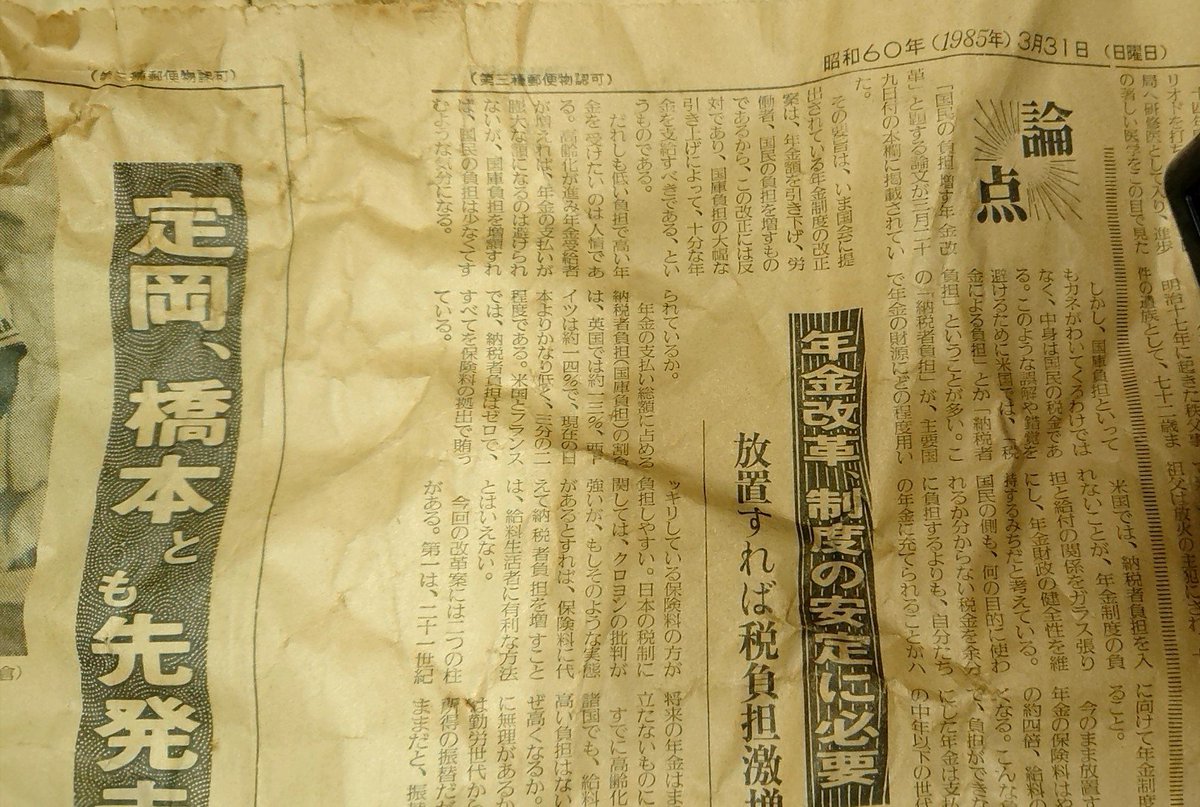 昭和60年(1985年)3月31日 (日曜日)
(第三種郵便物認可)
(第三種郵便物認可)
論点
年金改革 制度の安定に必要
放置すれば税負担激増
「国民の負担増す年金改
革」と題する論文が三月二十
九日付の本欄に掲載されてい
た。
その要旨は、いま国会に提
出されている年金制度の改正
案は、年金額を引き下げ、労
働者、国民の負担を増すもの
であるから、この改正には反
対であり、国庫負担の大幅な
引き上げによって、十分な年
金を支給すべきである、とい
うものである。
だれしも低い負担で高い年
金を受けたいのは人情であ
る。高齢化が進み年金受給者
が増えれば、年金の支払いが
膨大な額になるのは避けられ
ないが、国庫負担を増額すれ
ば、国民の負担は少なくてす
むような気分になる。
しかし、国庫負担といって
もカネがわいてくるわけでは
なく、中身は国民の税金であ
る。このような誤解や錯覚を
避けるために米国では、「税
金による負担」とか「納税者
負担」ということが多い。こ
の「納税者負担」が、主要国
で年金の財源にどの程度用い
られているか。
年金の支払い総額に占める
納税者負担(国庫負担)の割合
は、英国では約一三%、西ド
イツは約一四%で、現在の日
本よりかなり低く、三分の二
程度である。米国とフランス
では、納税者負担はゼロで、
すべてを保険料の拠出で賄っ
ている。
米国では、納税者負担を入
れないことが、年金制度の負
担と給付の関係をガラス張り
にし、年金財政の健全性を維
持するみちだと考えている。
国民の側も、何の目的に使わ
れるか分からない税金を余分
に負担するよりも、自分たち
の年金に充てられることがハ
ッキリしている保険料の方が
負担しやすい。日本の税制に
関しては、クロヨンの批判が
強いが、もしそのような実態
があるとすれば、保険料に代
えて納税者負担を増すこと
は、給料生活者に有利な方法
とはいえない。
今回の改革案には二つの柱
がある。第一は、二十一世紀
に向けて年金制度
ること。
今のまま放置す
年金の保険料は
の約四倍、給料
くなる。こんな
で、負担ができ
にした年金は支払
の中年以下の世代
将来の年金はま
立たないものに
すでに高齢化
諸国でも、給料
高い負担はない
ぜ高くなるか。
に無理があるか
は勤労世代から
所得の振替だ
ままだと、振
定岡、橋本とも先発